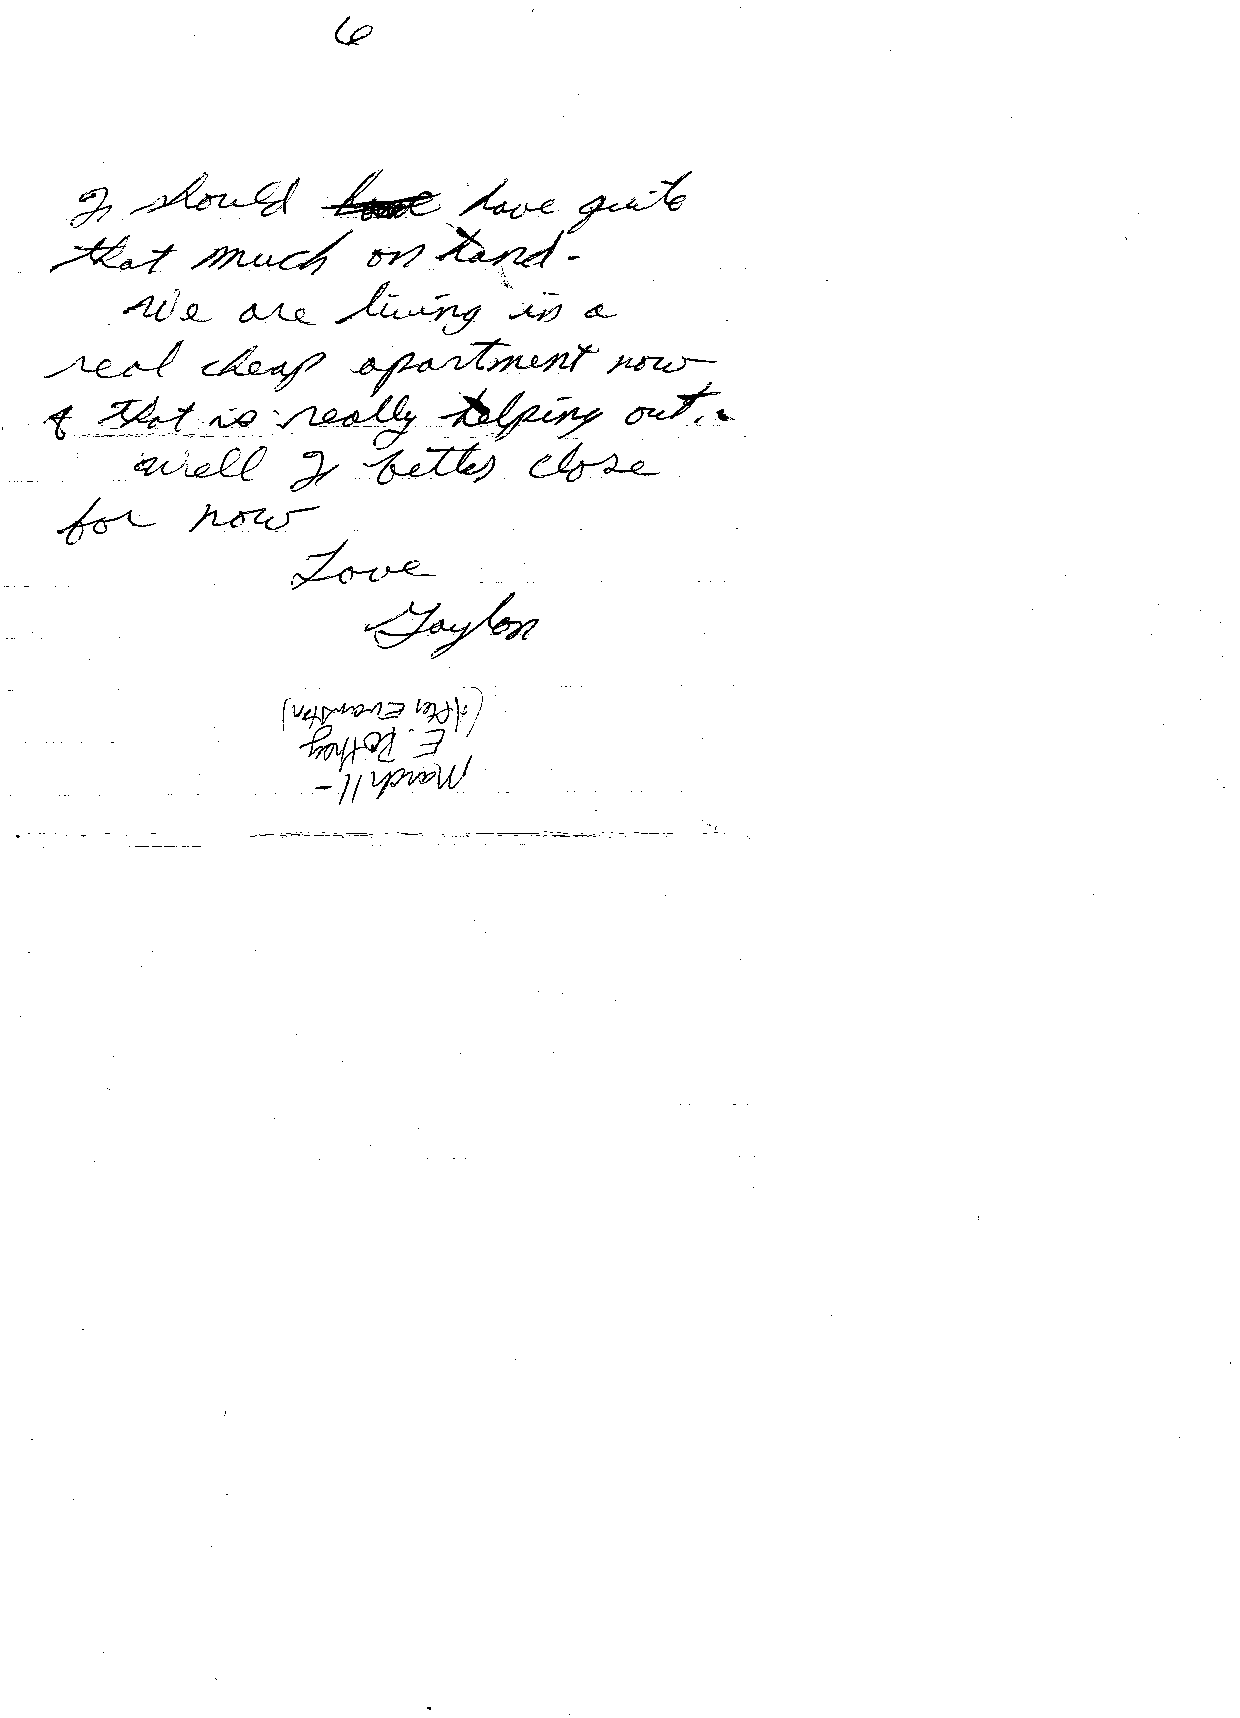 6
I should have quite
that much on hand -
We are living in a
real cheap apartment now
& that is really helping out.
Well I better close
for now
Love
Gaylon
March 11 -
E. Pothey
(after Evanston)